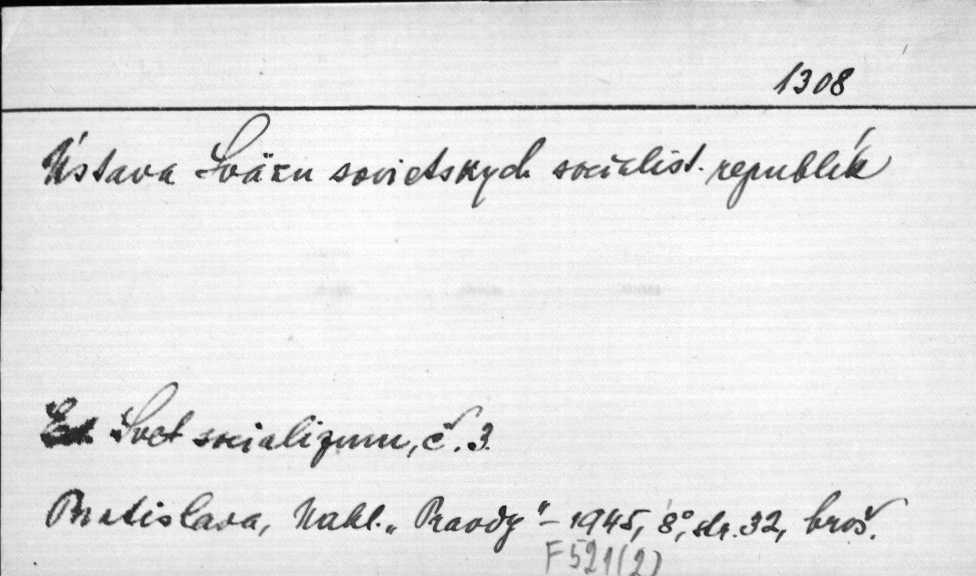 1308
Ústava Sväzu sovietskych socialist. republík
Svet socializmu, č. 3.
Bratislava, Nakl. „Pravdy" – 1945, 8°, str. 32, brož.
F 521(2)